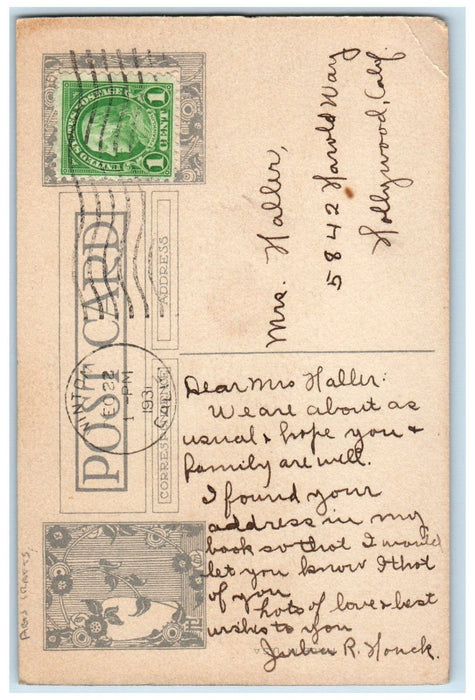 UNITED STATES POSTAGE
1 CENT 1
POST CARD
ADDRESS
CORRESPONDENCE
22
1 - PM
1931
CALIF
Mrs. Haller,
5842 Harold Way
Hollywood, Calif.
Dear Mrs Haller:
We are about as
usual & hope you &
family are well.
I found your
address in my
book so that I would
let you know I thot
of you
lots of love & best
wishes to you
R. Houck.